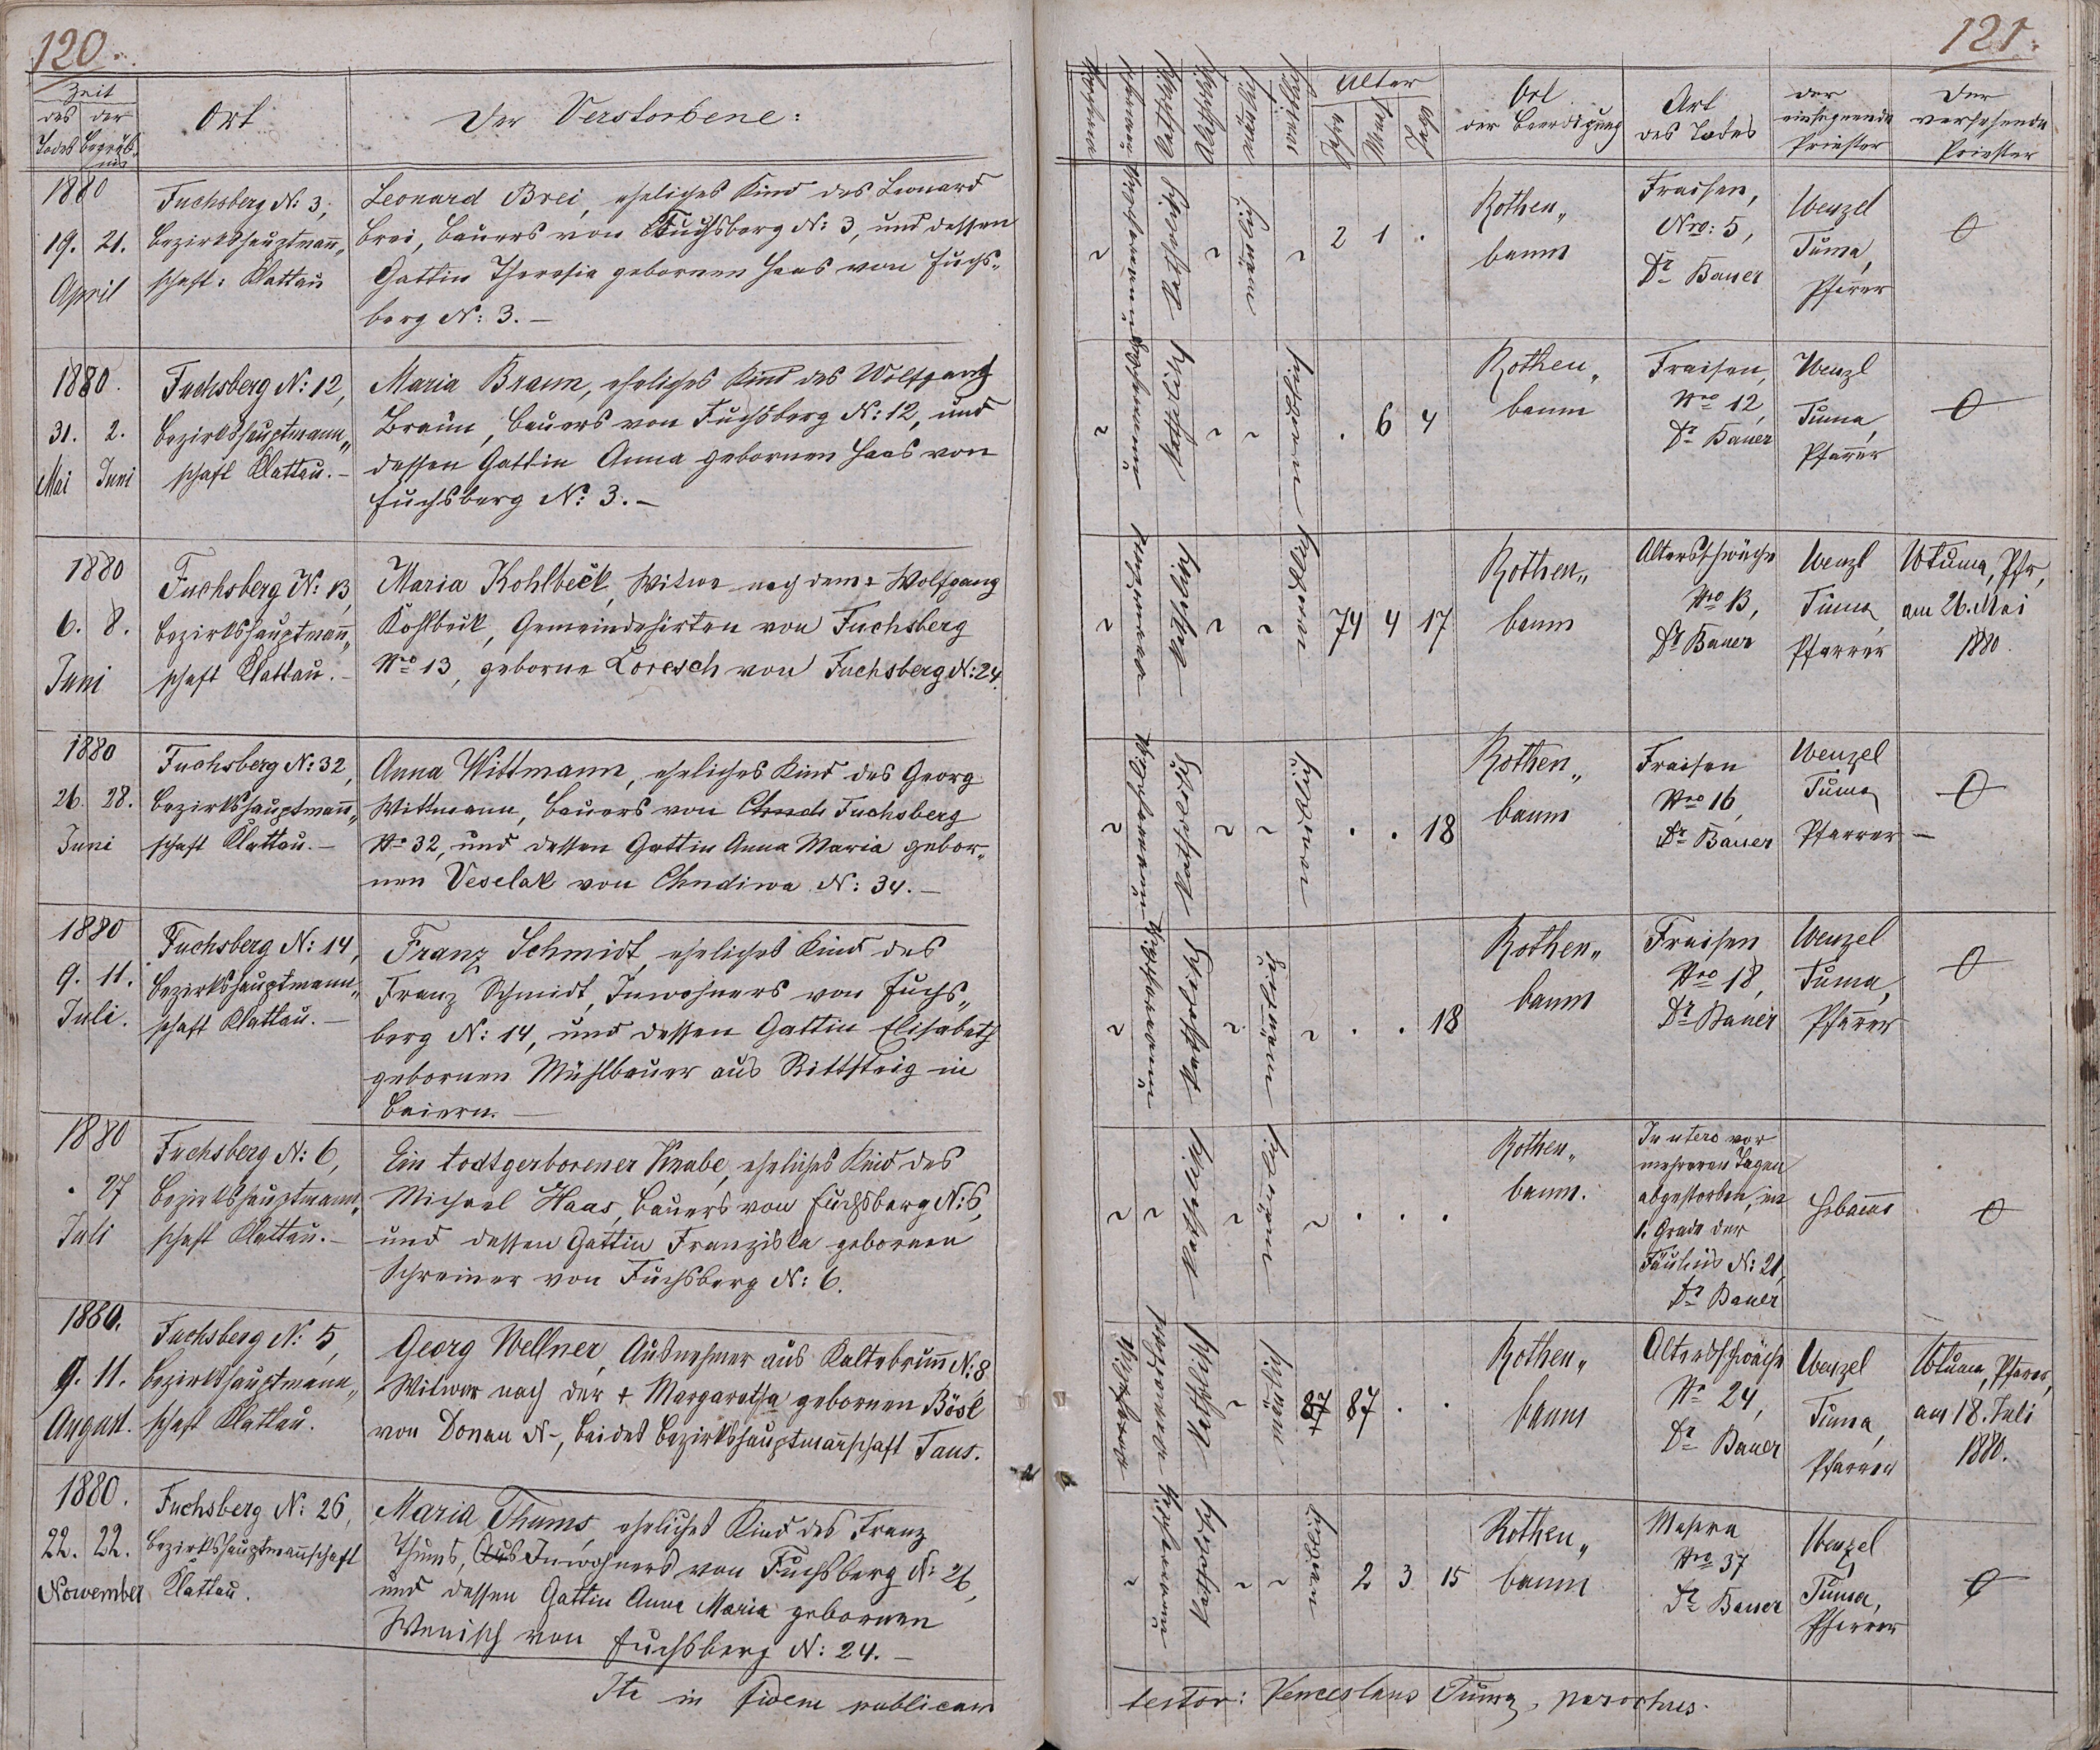 120.
Zeit
des der
Todes Begräb-
niss
Ort
Der Verstorbene:
1880
19. 21.
April
Fuchsberg N: 3,
Bezirkshauptmann„
schaft: Klattau
Leonard Brei, eheliches Kind des Leonard
Brei, Bauers von Fuchsberg N: 3, und dessen
Gattin Theresia gebornen Haas von Fuchs„
berg N: 3. –
1880.
31. 2.
Mai Juni
Fuchsberg N: 12,
Bezirkshauptmann„
schaft Klattau. –
Maria Braun, eheliches Kind des Wolfgang
Braun, Bauers von Fuchsberg N: 12, und
dessen Gattin Anna gebornen Haas von
Fuchsberg N: 3. –
1880
6. 8.
Juni
Fuchsberg N: 13,
Bezirkshauptmann„
schaft Klattau. –
Maria Kohlbeck, Witwe nach dem + Wolfgang
Kohlbeck, Gemeindehirten von Fuchsberg
Nro 13, geborne Loresch von Fuchsberg N: 24.
1880
26. 28.
Juni
Fuchsberg N: 32,
Bezirkshauptmann„
schaft Klattau. –
Anna Wittmann, eheliches Kind des Georg
Wittmann, Bauers von Fuchsberg
No 32, und dessen Gattin Anna Maria gebor„
nen Veselak von Chudiwa N: 34. –
1880
9. 11.
Juli.
Fuchsberg N: 14,
Bezirkshauptmann„
schaft Klattau. –
Franz Schmidt, eheliches Kind des
Franz Schmidt, Inwohners von Fuchs„
berg N: 14, und dessen Gattin Elisabeth
gebornen Mühlbauer aus Rittsteig in
Baiern. –
1880
. 27
Juli
Fuchsberg N: 6,
Bezirkshauptmann„
schaft Klattau. –
Ein todtgerborener Knabe, eheliches Kind des
Michael Haas, Bauers von Fuchsberg N: 6,
und dessen Gattin Franziska gebornen
Schreiner von Fuchsberg N: 6.
1880.
9. 11.
August.
Fuchsberg N: 5,
Bezirkshauptmann„
schaft Klattau.
Georg Wellner, Ausnehmer aus Kaltebrunn N: 8
Witwer nach der + Margaretha gebornen Bösl
von Donau N –, beides Bezirkshauptmannschaft Taus.
1880.
22. 22.
November
Fuchsberg N: 26,
Bezirkshauptmannschaft
Klattau.
Maria Thums, eheliches Kind des Franz
Thums, Inwohners von Fuchsberg N: 26,
und dessen Gattin Anna Maria gebornen
Wenisch von Fuchsberg N: 24. –
Ita in fidem publicam
121.
Katholisch
männlich
weiblich
Alter
Jahr
Monat
Tage
Ort
der Beerdigung
Art
des Todes
der
einsegnende
Priester
Der
versehende
Priester
2 1 .
Rothen„
baum
Fraisen,
Nro: 5,
Dr Bauer
Wenzel
Tuma,
Pfarrer
. 6 4
Rothen„
baum
Fraisen,
Nro 12,
Dr Bauer
Wenzl
Tuma,
Pfarrer
74 4 17
Rothen„
baum
Altersschwäche
Nro 13,
Dr Bauer
Wenzl
Tuma,
Pfarrer
WTuma, Pfr,
am 26. Mai
1880.
. . 18
Rothen„
baum
Fraisen
Nro 16,
Dr Bauer
Wenzel
Tuma,
Pfarrer –
. . 18
Rothen„
baum
Fraisen
Nro 18,
Dr Bauer
Wenzel
Tuma,
Pfarrer
. . .
Rothen„
baum.
In utero vor
mehreren Tagen
abgestorben, im
1. Grade der
Fäulnis N: 21,
Dr Bauer
Hebamme
87 87 . .
Rothen„
baum
Altersschwäche
No 24,
Dr Bauer
Wenzel
Tuma,
Pfarrer
WTuma, Pfarrer,
am 18. Juli
1880.
2 3 15
Rothen„
baum
Masern
Nro 37
Dr Bauer
Wenzel
Tuma,
Pfarrer
testor: Venceslaus Tuma, parochus.